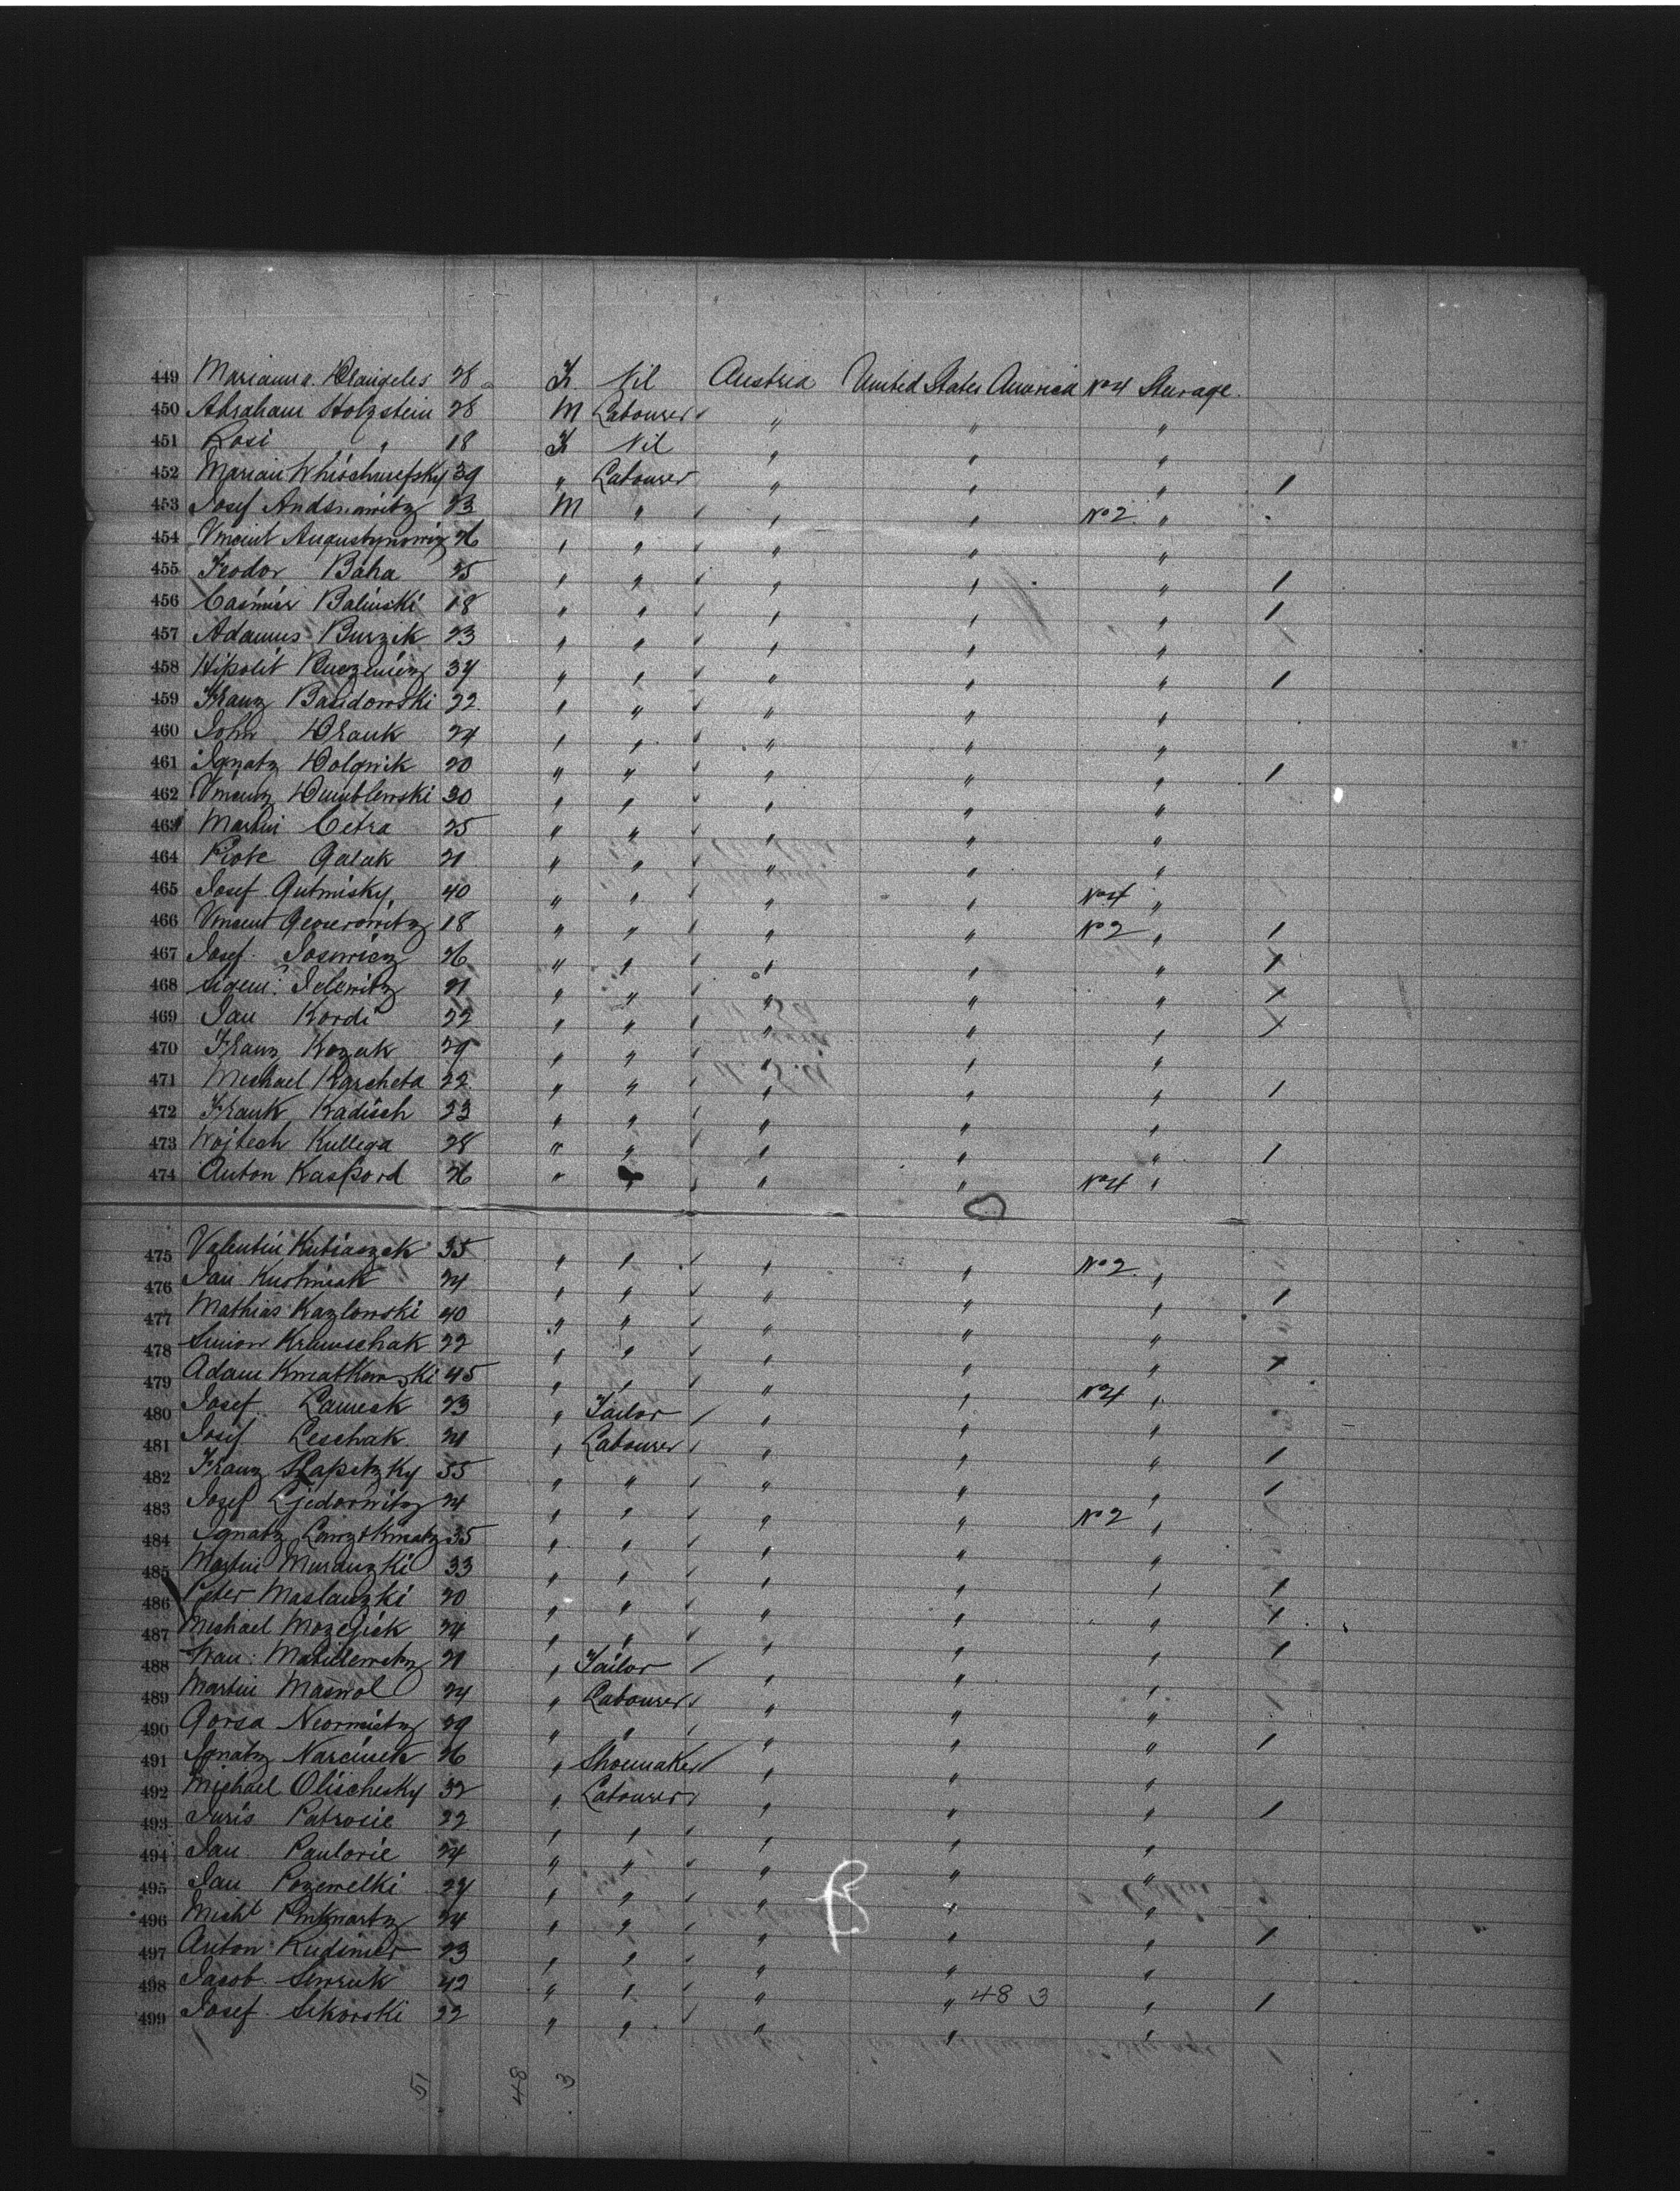 449 Marianna Dlaugeles 28 F. Nil Austria United States America No 4 Sturage.
450 Abraham Holzstein 28 M Labourer " " "
451 Rosi " 18 F Nil " " "
452 Marian 39 " Labourer " " " 1
453 Josef 23 M " " " No 2 "
454 Vincint Augustynowiz 26 " " " " "
455 Feodor Baha 25 " " " " " 1
456 Casimier Balinski 18 " " " " " 1
457 Adamus Burzik 23 " " " " "
458 Hipolit 34 " " " " " 1
459 Franz Basidowski 22 " " " " "
460 John Drauk 24 " " " " "
461 Ignatz Dolgwik 20 " " " " " 1
462 Vincenz Dumblewski 30 " " " " "
463 Martin Cetra 25 " " " " "
464 Piote Galuk 21 " " " " "
465 Josef Gutmisky 40 " " " " No 4 "
466 Vincent 18 " " " " No 2 " 1
467 Josef Josewicz 26 " " " " " 1
468 Jelewitz 21 " " " " "
469 Jan Kordi 22 " " " " "
470 Franz Kozak 29 " " " " "
471 Michael Karcheta 22 " " " " " 1
472 Frank Kadisch 23 " " " " "
473 Wojtech Kullega 28 " " " " " 1
474 Anton Kaspord 26 " " " " No 4 "
475 Valentin Kubiaszek 35 " " " " No 2 "
476 Jan 24 " " " " " 1
477 Mathias Kazlowski 40 " " " " "
478 Simion 22 " " " " "
479 Adam Kwiatkowski 45 " " " " No 4 "
480 Josef 23 " Tailor " " "
481 Josif Leschak 21 " Labourer " " " 1
482 Franz Lapetzky 35 " " " " " 1
483 Josef Ljedorwitz 24 " " " " No 2 "
484 Ignatz 35 " " " " "
485 Martin Murauzki 33 " " " " " 1
486 Peter Maslauzki 20 " " " " " 1
487 Michael Mozejick 24 " " " " " 1
488 21 " Tailor " " "
489 Martin 24 " Labourer " " "
490 Gorsa 29 " " " " " 1
491 Ignatz Narcisuk 26 " Shoemaker " " "
492 Michael Olischesky 32 " Labourer " " " 1
493 Juris Patrocie 22 " " " " "
494 Jan Paulovie 24 " " " " "
495 Jan Pozemelki 24 " " " " "
496 Michl 24 " " " " " 1
497 Anton Rudimer 23 " " " " "
498 Jacob 42 " " " " 48 3 " 1
499 Josef Sikorski 22 " " " " "
51 48 3